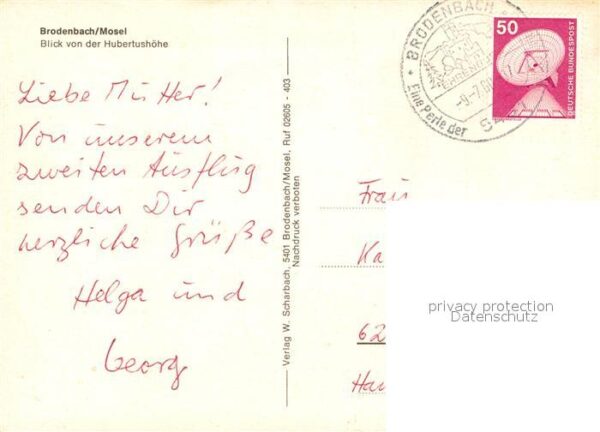 Brodenbach/Mosel
Blick von der Hubertushöhe
Liebe Mutter!
Von unserem
zweiten Ausflug
senden Dir
herzliche Grüße
Helga und
Georg
Verlag W. Scharbach, 5401 Brodenbach/Mosel, Ruf 02605 - 403
Nachdruck verboten
BRODENBACH
EHRENBURG
-9.-7.
Eine Perle der
54
50
DEUTSCHE BUNDESPOST
Frau
Ka
62
Han
privacy protection
Datenschutz